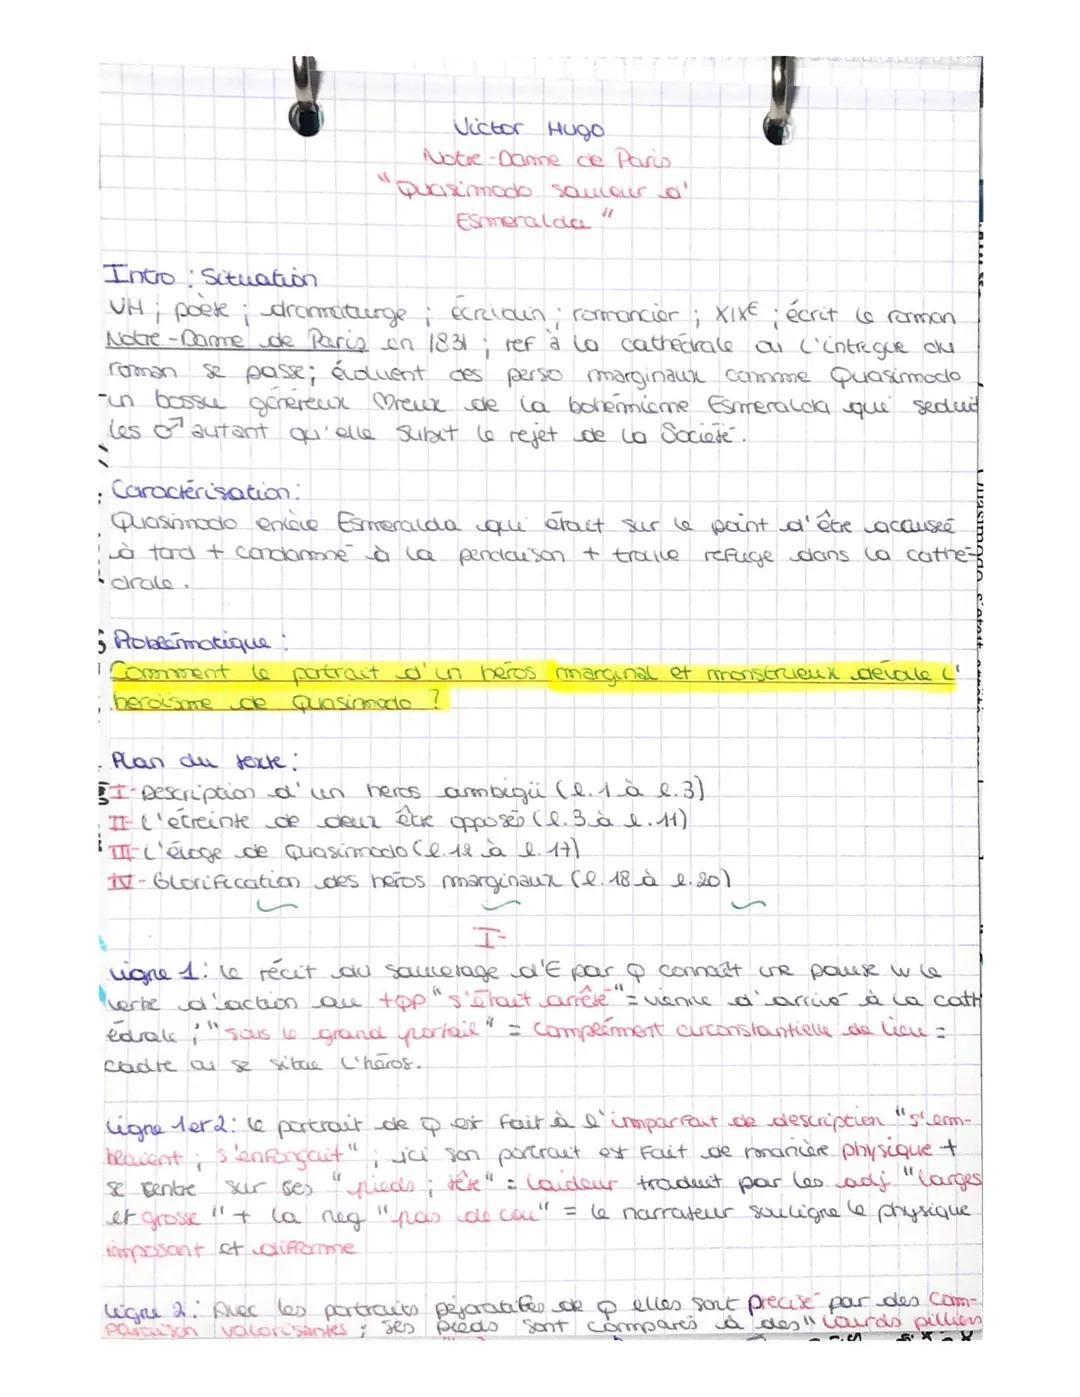 Victor Hugo
Notre-Dame de Paris
"Quasimodo sauveur d'
Esmeralda"
Intro : Situation
VH ; poète ; dramaturge ; écrivain ; romancier ; XIXe ; écrit le roman
Notre-Dame de Paris en 1831 ; ref à la cathédrale où l'intrigue du
roman se passe ; évoluent des perso marginaux comme Quasimodo
un bossu généreux
de la bohémienne Esmeralda qui séduit
les ♂ autant qu'elle subit le rejet de la Société.
Caractérisation :
Quasimodo enlève Esmeralda qui était sur le point d'être accusée
à tord + condamné à la pendaison + trouve refuge dans la cathé-
drale.
Problématique :
Comment le portrait d'un héros marginal et monstrueux dévoile l'
héroïsme de Quasimodo ?
Plan du texte :
I- Description d'un héros ambigü (l.1 à l.3)
II- L'étreinte de deux être opposés (l.3 à l.11)
III- L'éloge de Quasimodo (l.12 à l.17)
IV- Glorification des héros marginaux (l.18 à l.20)
I-
Ligne 1 : le récit du sauvetage d'E par Q connaît une pause w le
verbe d'action au +qp "s'était arrêté" = vienne d'arrivé à la cath
édrale ; "sous le grand portail" = complément circonstantielle de lieu =
cadre où se situe l'héros.
Ligne 1 et 2 : le portrait de Q est fait à l'imparfait de description "s'em-
blaient ; s'enfonçait" ; ici son portrait est fait de manière physique +
se centre sur ses "pieds ; tête" = laideur traduit par les adj "larges
et grosse" + la neg "pas de cou" = le narrateur souligne le physique
imposant et difforme
Ligne 2 : Avec les portraits péjoratifes de Q elles sont precisé par des com-
paraison valorisantes ; ses pieds sont comparés à des "lourds pilliers